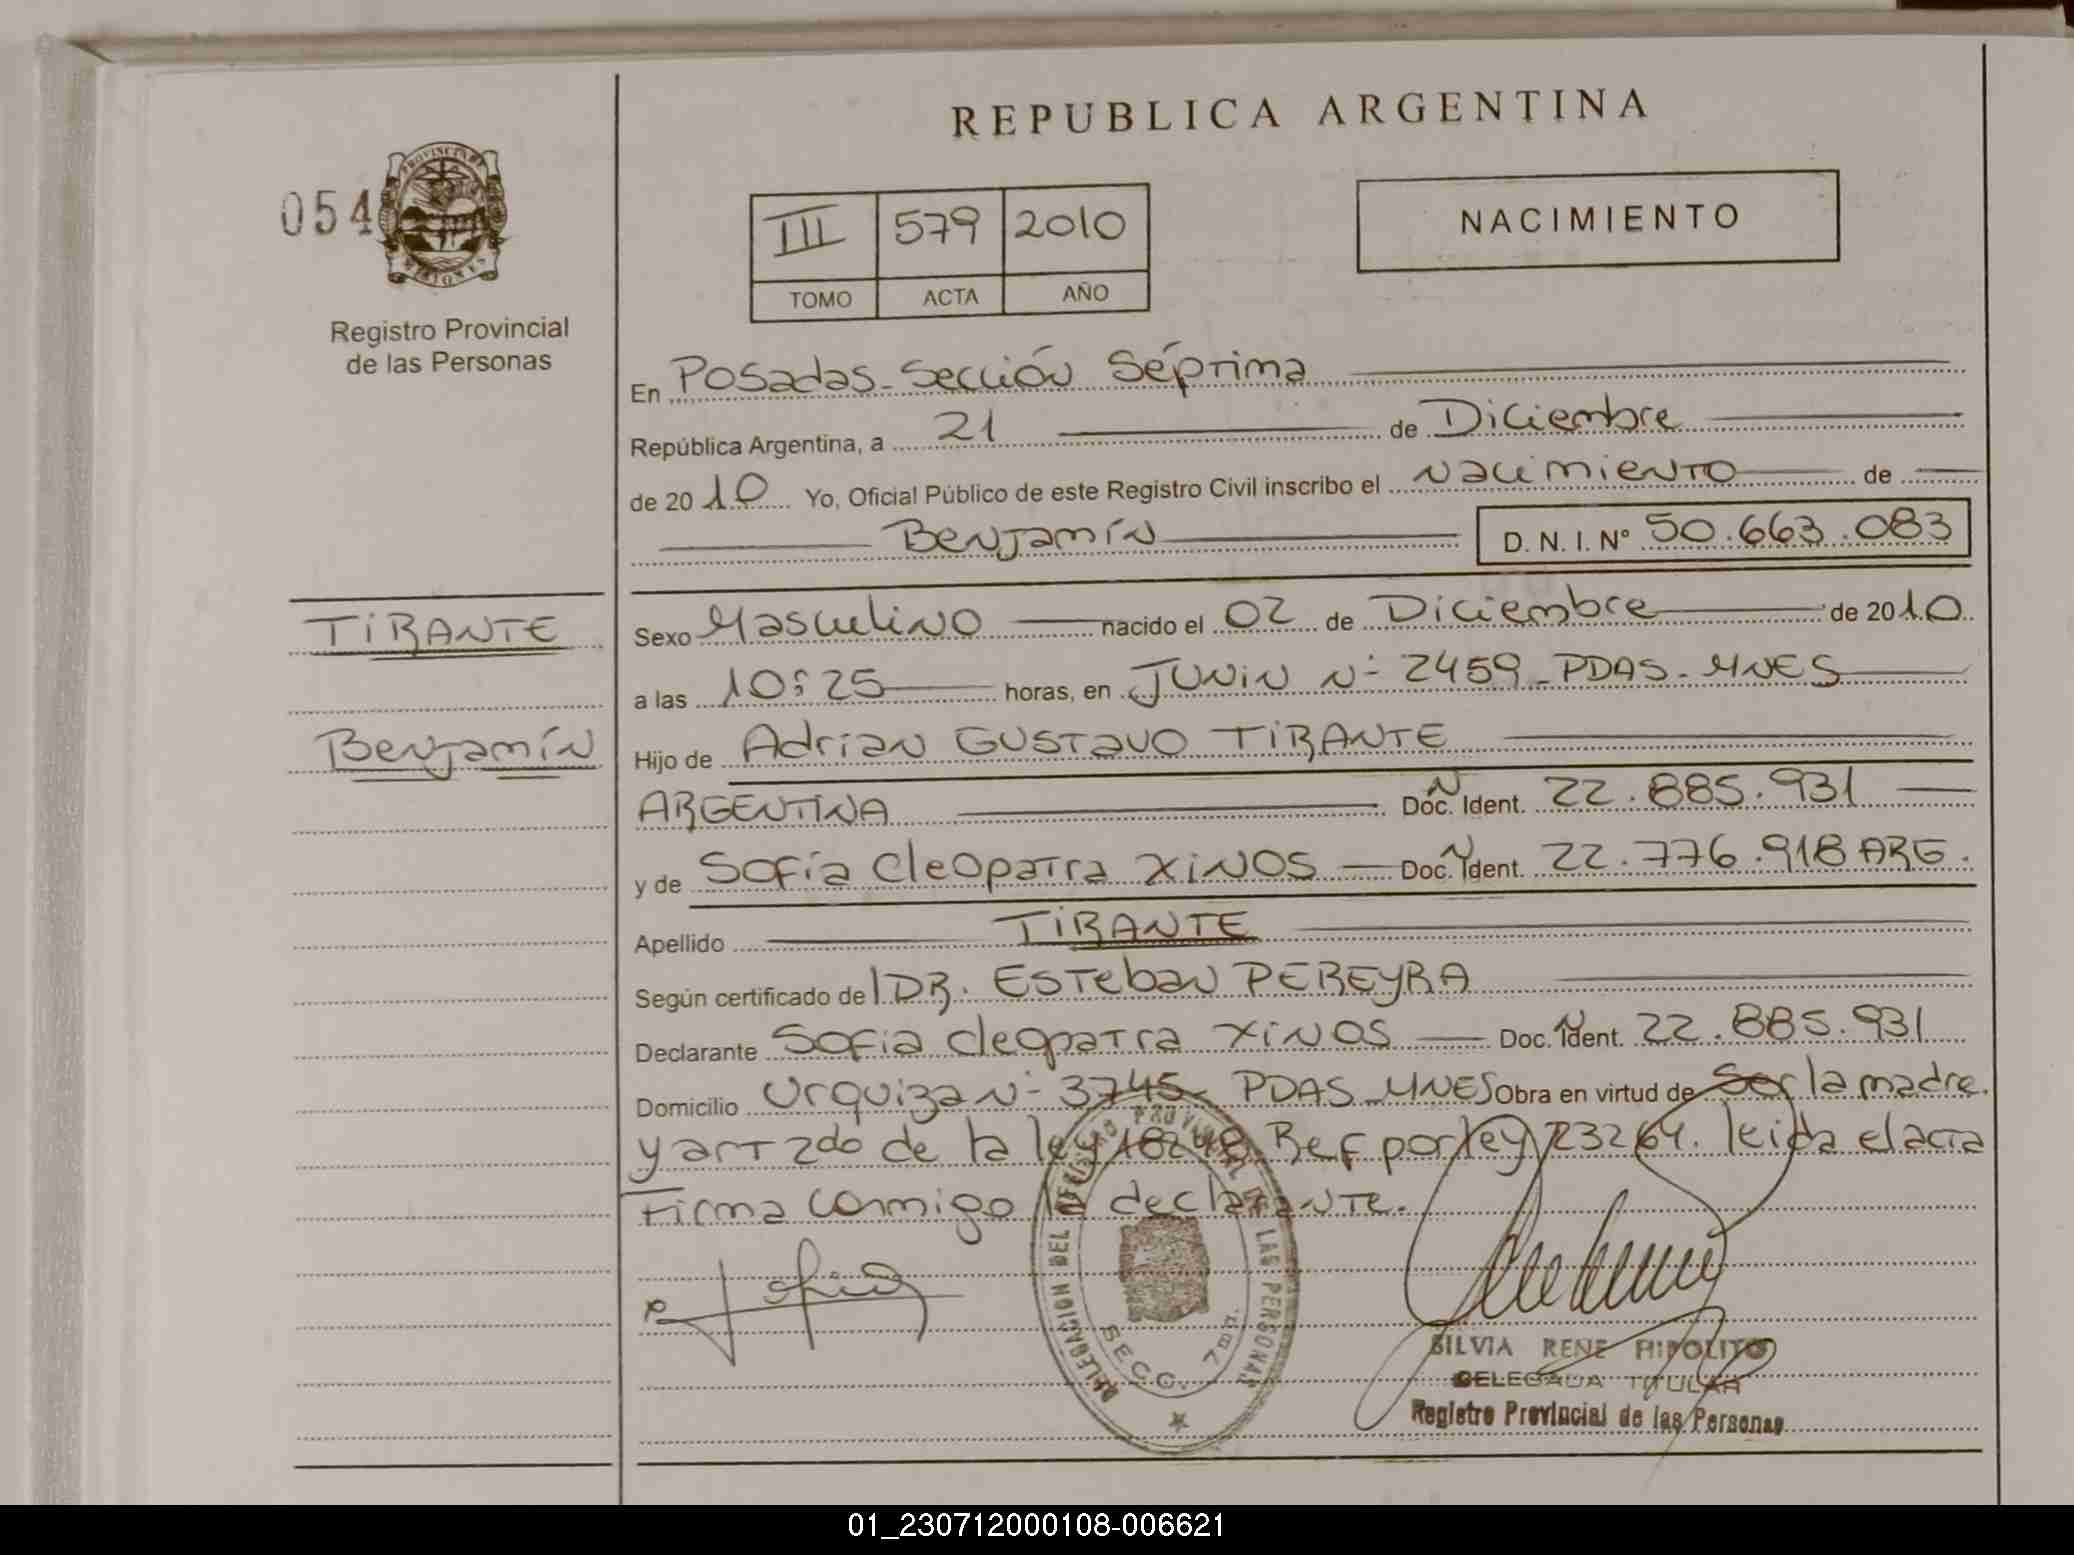 REPUBLICA ARGENTINA
054
PROVINCIA DE
MISIONES
Registro Provincial
de las Personas
III 579 2010
TOMO ACTA AÑO
NACIMIENTO
En Posadas - Sección Séptima
República Argentina, a 21 de Diciembre
de 2010 Yo, Oficial Público de este Registro Civil inscribo el Nacimiento de
Benjamín D. N. I. Nº 50.663.083
TIRANTE
Benjamín
Sexo Masculino nacido el 02 de Diciembre de 2010
a las 10:25 horas, en JUNIN N- 2459 - PDAS - MNES
Hijo de Adrian GUSTavo TIRANTE
ARGENTINA Doc. N Ident. 22.885.931
y de Sofía Cleopatra XINOS Doc. N Ident. 22.776.918 ARG.
Apellido TIRANTE
Según certificado del DR. Esteban PEREYRA
Declarante Sofia Cleopatra XINOS Doc. N Ident. 22.885.931
Domicilio Urquiza N- 3745 - PDAS - MNES Obra en virtud de Ser la madre.
y art 2do de la ley 18248 Ref por ley 23264. leida el acta
Firma conmigo la declarante.
Sofia
DELEGACION DEL REGISTRO PROVINCIAL DE LAS PERSONAS
SECC. 7ma.
SILVIA RENE HIPOLITO
DELEGADA TITULAR
Registro Provincial de las Personas
01_230712000108-006621